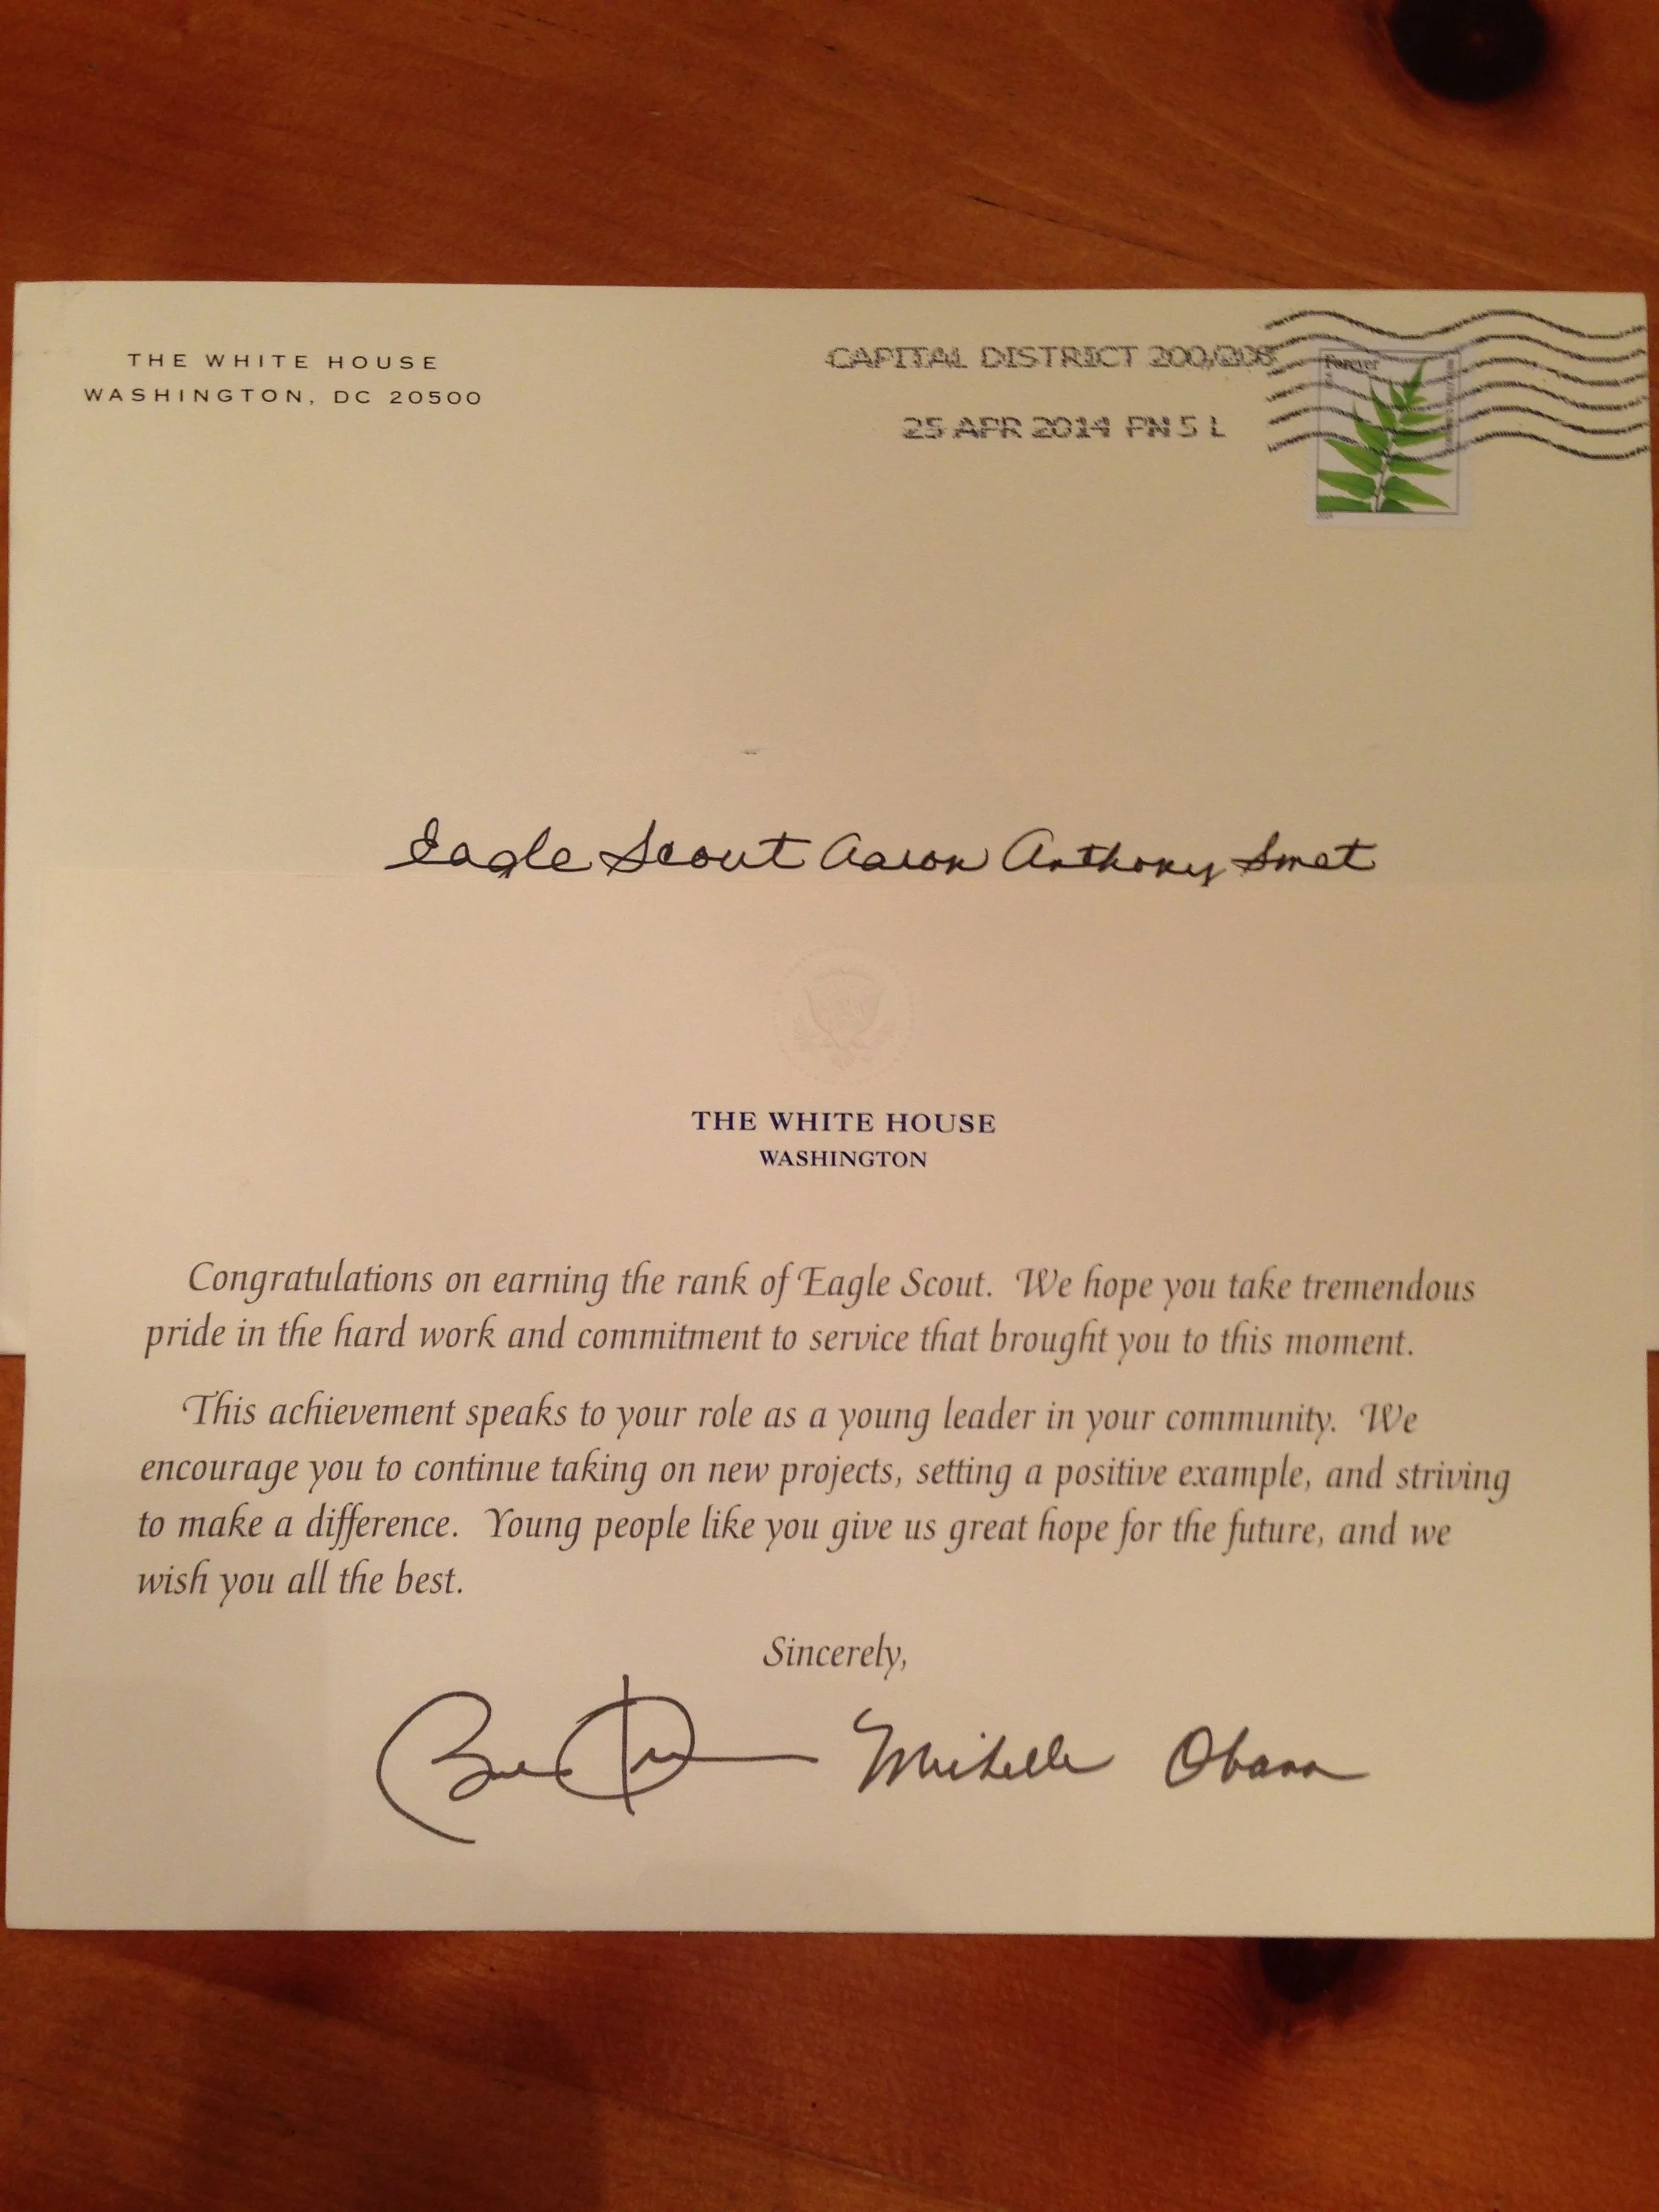 THE WHITE HOUSE
WASHINGTON, DC 20500
CAPITAL DISTRICT 200/208
25 APR 2014 PM 5 L
Forever
Eagle Scout Aaron Anthony Smet
THE WHITE HOUSE
WASHINGTON
Congratulations on earning the rank of Eagle Scout. We hope you take tremendous
pride in the hard work and commitment to service that brought you to this moment.
This achievement speaks to your role as a young leader in your community. We
encourage you to continue taking on new projects, setting a positive example, and striving
to make a difference. Young people like you give us great hope for the future, and we
wish you all the best.
Sincerely,
Michelle Obama